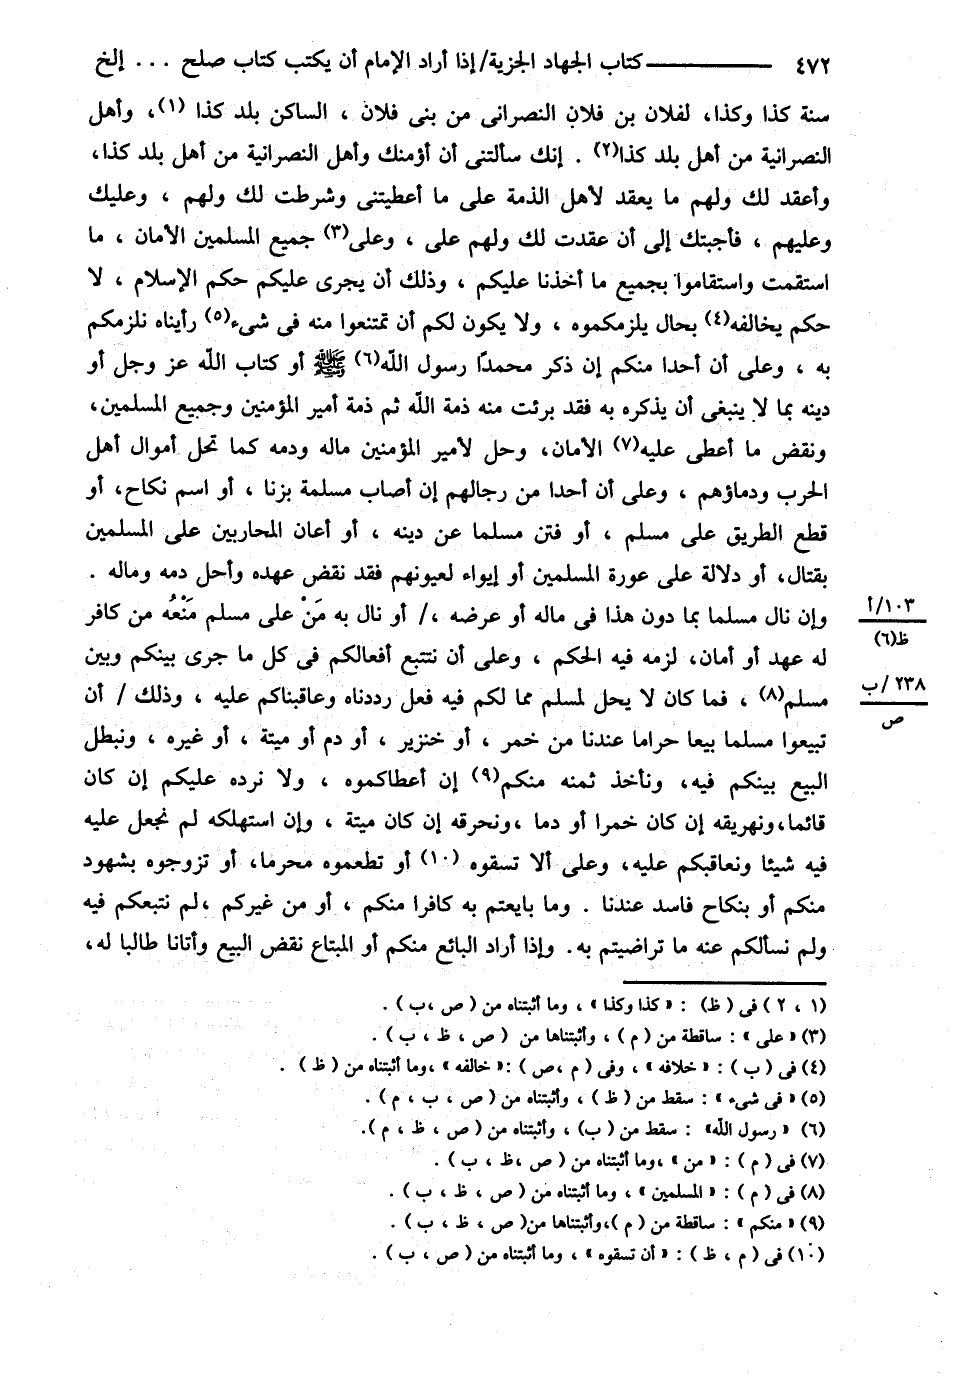 ٤٧٢ ــــــــــــ كتاب الجهاد الجزية/ إذا أراد الإمام أن يكتب كتاب صلح ... إلخ
سنة كذا وكذا، لفلان بن فلان النصرانى من بنى فلان ، الساكن بلد كذا (١)، وأهل
النصرانية من أهل بلد كذا(٢) . إنك سألتنى أن أؤمنك وأهل النصرانية من أهل بلد كذا،
وأعقد لك ولهم ما يعقد لأهل الذمة على ما أعطيتنى وشرطت لك ولهم ، وعليك
وعليهم ، فأجبتك إلى أن عقدت لك ولهم على ، وعلى(٣) جميع المسلمين الأمان ، ما
استقمت واستقاموا بجميع ما أخذنا عليكم ، وذلك أن يجرى عليكم حكم الإسلام ، لا
حكم يخالفه(٤) بحال يلزمكموه ، ولا يكون لكم أن تمتنعوا منه فى شىء(٥) رأيناه نلزمكم
به ، وعلى أن أحدا منكم إن ذكر محمدًا رسول الله(٦) ﷺ أو كتاب الله عز وجل أو
دينه بما لا ينبغى أن يذكره به فقد برئت منه ذمة الله ثم ذمة أمير المؤمنين وجميع المسلمين،
ونقض ما أعطى عليه(٧) الأمان، وحل لأمير المؤمنين ماله ودمه كما تحل أموال أهل
الحرب ودماؤهم ، وعلى أن أحدا من رجالهم إن أصاب مسلمة بزنا ، أو اسم نكاح، أو
قطع الطريق على مسلم ، أو فتن مسلما عن دينه ، أو أعان المحاربين على المسلمين
بقتال، أو دلالة على عورة المسلمين أو إيواء لعيونهم فقد نقض عهده وأحل دمه وماله .
وإن نال مسلما بما دون هذا فى ماله أو عرضه ،/ أو نال به مَنْ على مسلم مَنْعُه من كافر
له عهد أو أمان، لزمه فيه الحكم ، وعلى أن نتتبع أفعالكم فى كل ما جرى بينكم وبين
مسلم(٨) ، فما كان لا يحل لمسلم مما لكم فيه فعل رددناه وعاقبناكم عليه ، وذلك / أن
تبيعوا مسلما بيعا حراما عندنا من خمر ، أو خنزير ، أو دم أو ميتة ، أو غيره ، ونبطل
البيع بينكم فيه، ونأخذ ثمنه منكم(٩) إن أعطاكموه ، ولا نرده عليكم إن كان
قائما،ونهريقه إن كان خمرا أو دما ،ونحرقه إن كان ميتة ، وإن استهلكه لم نجعل عليه
فيه شيئا ونعاقبكم عليه، وعلى ألا تسقوه (١٠) أو تطعموه محرما، أو تزوجوه بشهود
منكم أو بنكاح فاسد عندنا . وما بايعتم به كافرا منكم ، أو من غيركم ،لم نتبعكم فيه
ولم نسألكم عنه ما تراضيتم به. وإذا أراد البائع منكم أو المبتاع نقض البيع وأتانا طالبا له،
١٠٣/أ
ظ(٦)
٢٣٨/ب
ص
(١ ، ٢ ) فى ( ظ) : « كذا وكذا » ، وما أثبتناه من ( ص ،ب ) .
(٣) « على » : ساقطة من ( م ) ، وأثبتناها من ( ص ، ظ ، ب ) .
(٤) فى ( ب ) : « خلافه » ، وفى ( م ،ص ) :« خالفه » ،وما أثبتناه من ( ظ ) .
(٥) « فى شىء » : سقط من ( ظ ) ، وأثبتناه من ( ص ، ب ، م ) .
(٦) « رسول الله» : سقط من ( ب) ، وأثبتناه من ( ص ، ظ ، م ).
(٧) فى ( م ) : « من » ،وما أثبتناه من ( ص ،ظ ، ب ) .
(٨) فى ( م ) : « المسلمين » ، وما أثبتناه من ( ص ، ظ ، ب ) .
(٩) « منكم » : ساقطة من ( م )،وأثبتناها من( ص ، ظ ، ب ) .
(١٠) فى ( م ، ظ ) : « أن تسقوه » ، وما أثبتناه من ( ص ، ب ) .